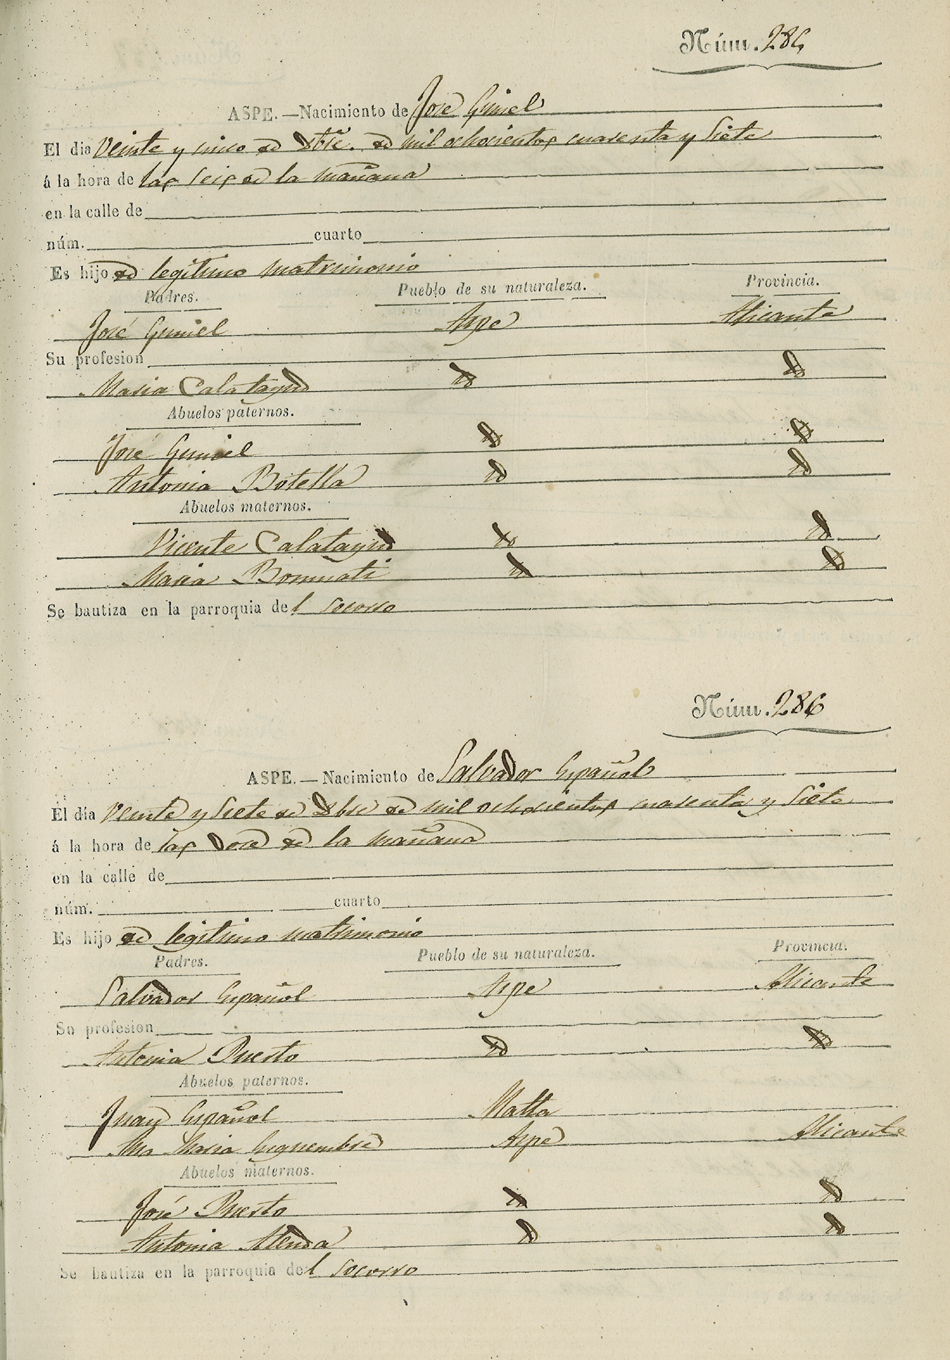 Núm. 286
ASPE.—Nacimiento de José Gumiel
El dia Veinte y cinco de Dbre. de mil ochocientos cuarenta y Siete
á la hora de las seis de la mañana
en la calle de
núm. cuarto
Es hijo de legitimo matrimonio
Padres. Pueblo de su naturaleza. Provincia.
José Gumiel Aspe Alicante
Su profesion
Maria Calatayud id id
Abuelos paternos.
José Gumiel id id
Antonia Botella id id
Abuelos maternos.
Vicente Calatayud id id
Maria Bonmati id id
Se bautiza en la parroquia del Socorro
Núm. 286
ASPE.—Nacimiento de Salvador Español
El dia Veinte y Siete de Dbre de mil ochocientos cuarenta y Siete
á la hora de las Doce de la mañana
en la calle de
núm. cuarto
Es hijo de legitimo matrimonio
Padres. Pueblo de su naturaleza. Provincia.
Salvador Español Aspe Alicante
Su profesion
Antonia Puerto id id
Abuelos paternos.
Juan Español Malta
Maria Aspe Alicante
Abuelos maternos.
José Puerto id id
Antonia Alenda id id
Se bautiza en la parroquia del Socorro